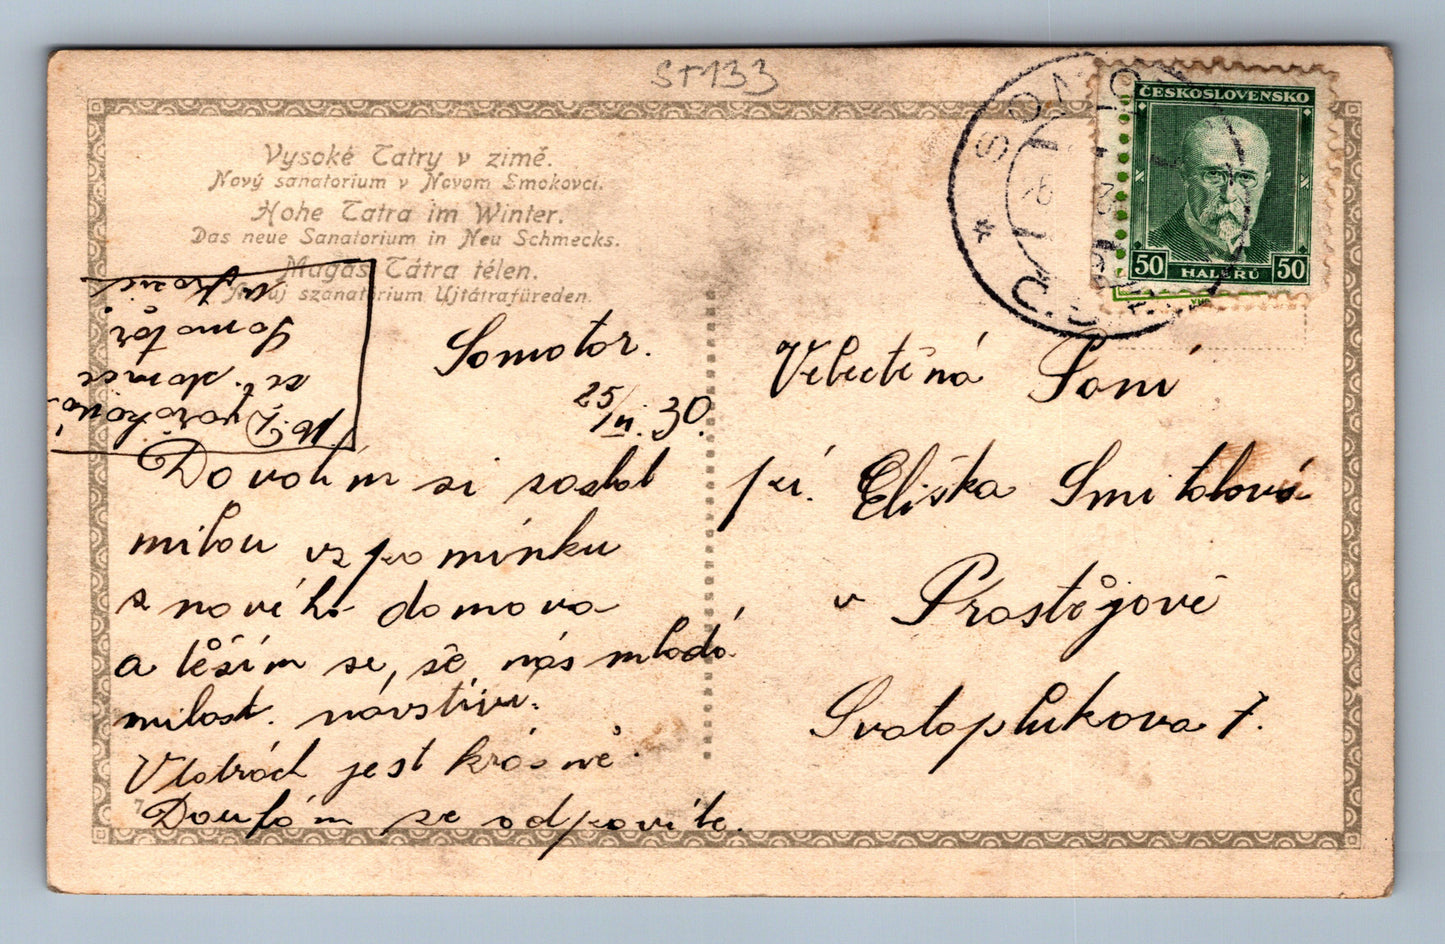 ST133
Vysoké Tatry v zimě.
Nový sanatorium v Novom Smokovci.
Hohe Tatra im Winter.
Das neue Sanatorium in Neu Schmecks.
Magas Tátra télen.
Az uj szanatórium Ujtátrafüreden.
ČESKOSLOVENSKO
50 HALÉŘŮ 50
SOMOTOR
Dvořáková
Somotor
Somotor.
25/III. 30.
Dovolím si zaslat
milou vzpomínku
z nového domova
a těším se, še nás mladá
milost. návštívi.
V tatrách jest krásně.
Doufám ze odpovíte.
Velectěná Paní
pí. Eliška Smitalová
v Prostějově
Svatoplukova 7.
7